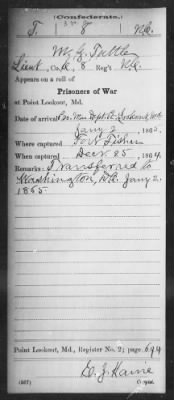 (Confederate.)
T. 8 N.C.
M. G. Tuttle
Lieut, Co. K, 8 Reg't N.C.
Appears on a roll of
Prisoners of War
at Point Lookout, Md.
Date of arrival
Jany 2, 1865.
Where captured Fort Fisher
When captured Decr. 25, 1864.
Remarks: Transferred to
Washington, D.C. Jany 2.
1865.
Point Lookout, Md., Register No. 2; page 694
G. J. Kaine
(567) Copyist.